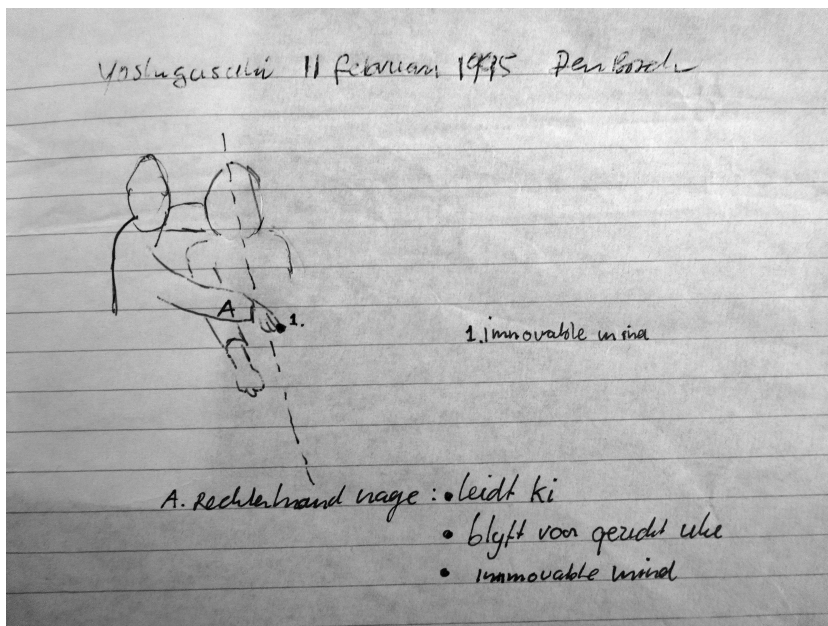 Yoshigasaki 11 februari 1995 Den Bosch
A
1.
1. immovable mind
A. Rechterhand nage : • leidt ki
• blyft voor gezicht uke
• immovable mind